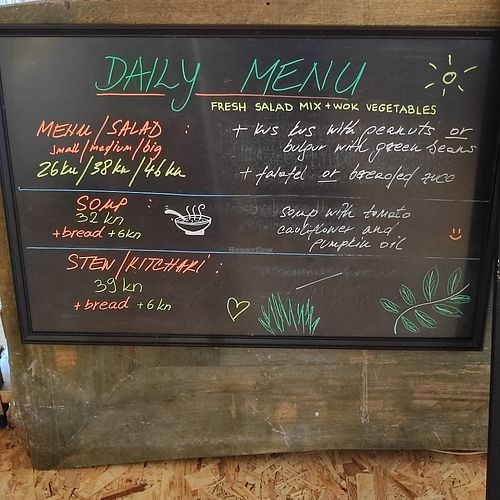 DAILY MENU
FRESH SALAD MIX + WOK VEGETABLES
MENU/SALAD :
small/medium/big
26kn/38kn/46kn
+ kus kus with peanuts or
bulgur with green beans
+ falafel or breaded
SOUP :
32 kn
+ bread + 6kn
soup with tomato
cauliflower and
pumpkin oil
STEW/KITCHARI :
39 kn
+ bread + 6 kn
HappyCow